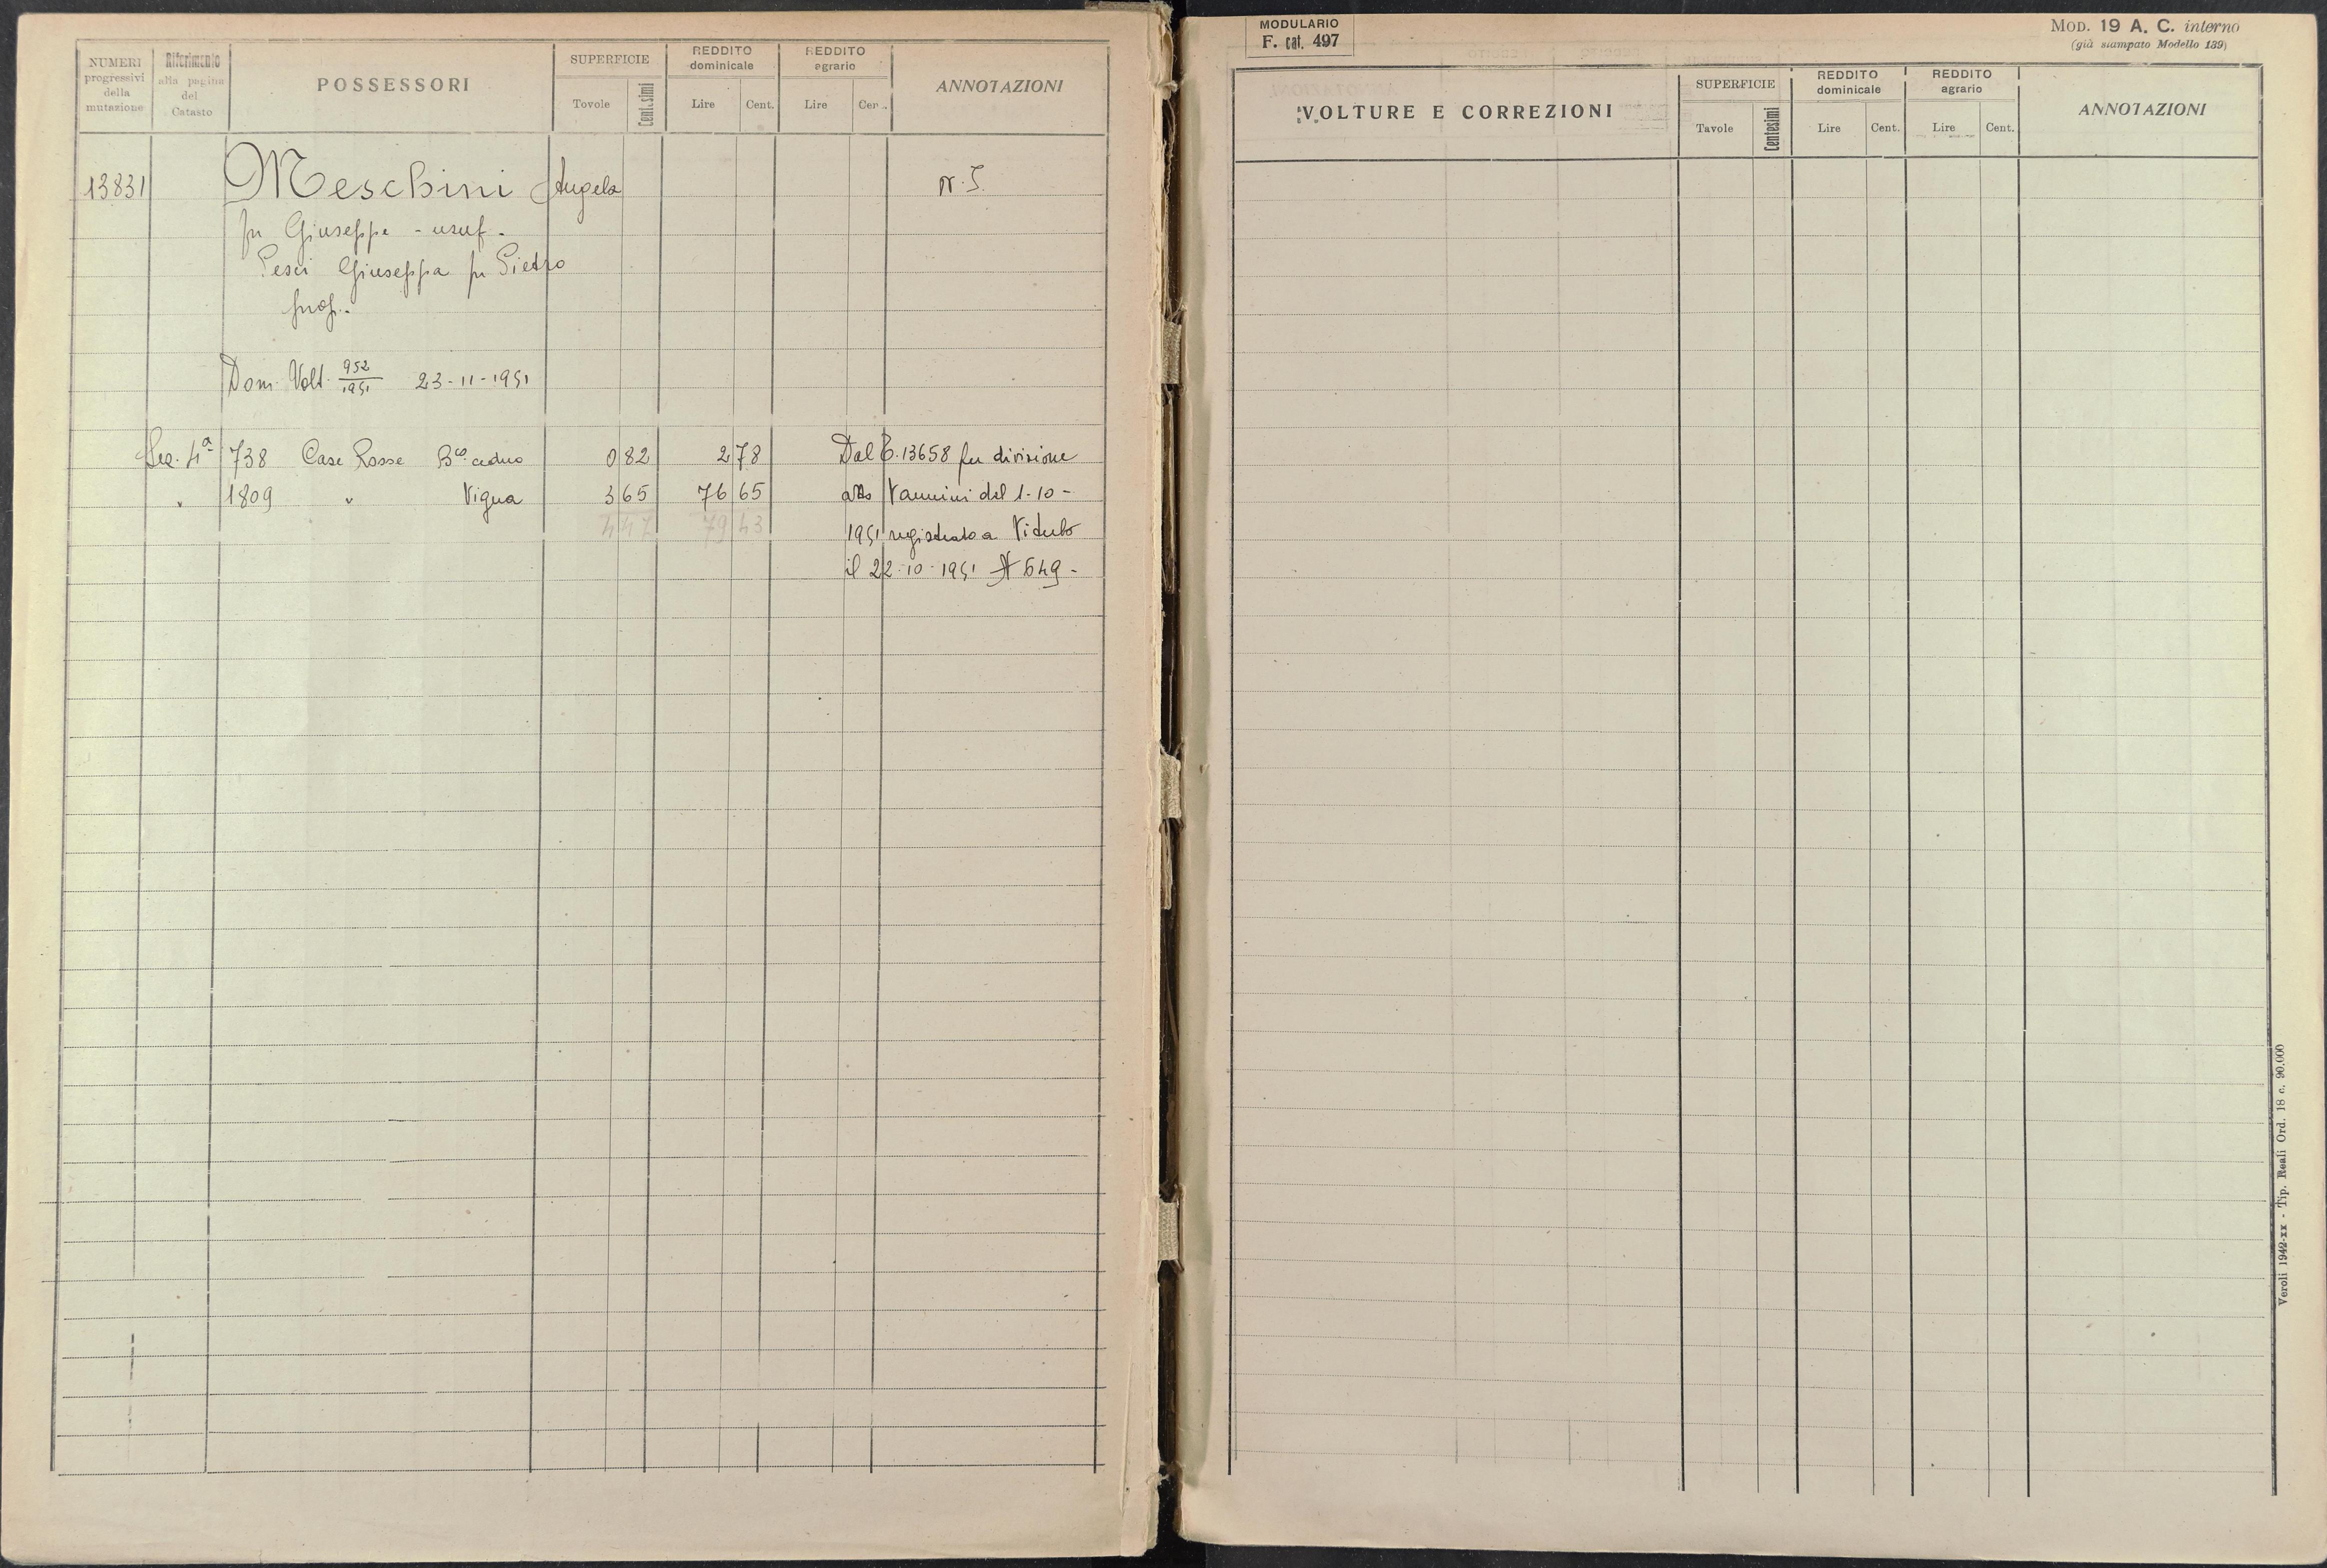 NUMERI progressivi della mutazione
Riferimento alla pagina del Catasto
POSSESSORI
SUPERFICIE
Tavole
Centesimi
REDDITO dominicale
Lire Cent.
REDDITO agrario
Lire Cen.
ANNOTAZIONI
13831 Meschini Angela N. 5.
fu Giuseppe - usuf.
Pesci Giuseppa fu Pietro
prop.
Dom. Volt. 952/1951 23-11-1951
Sez. 4ª 738 Case Rosse Bco. ceduo 0 82 2 78 Dal P. 13658 per divisione
" 1809 " Vigna 3 65 76 65 atto Vannini del 1-10-
4 47 79 43 1951 registrato a Viterbo
il 22-10-1951 N 649 -
MODULARIO
F. cat. 497
MOD. 19 A. C. interno
(già stampato Modello 139)
VOLTURE E CORREZIONI
SUPERFICIE
Tavole
Centesimi
REDDITO dominicale
Lire Cent.
REDDITO agrario
Lire Cent.
ANNOTAZIONI
Veroli 1942-XX - Tip. Reali Ord. 18 c. 90.000